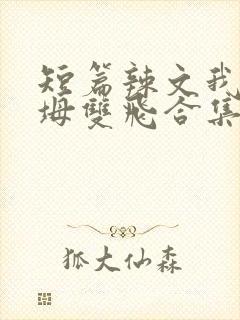 短篇辣文我
坶雙飛合集
狐大仙森